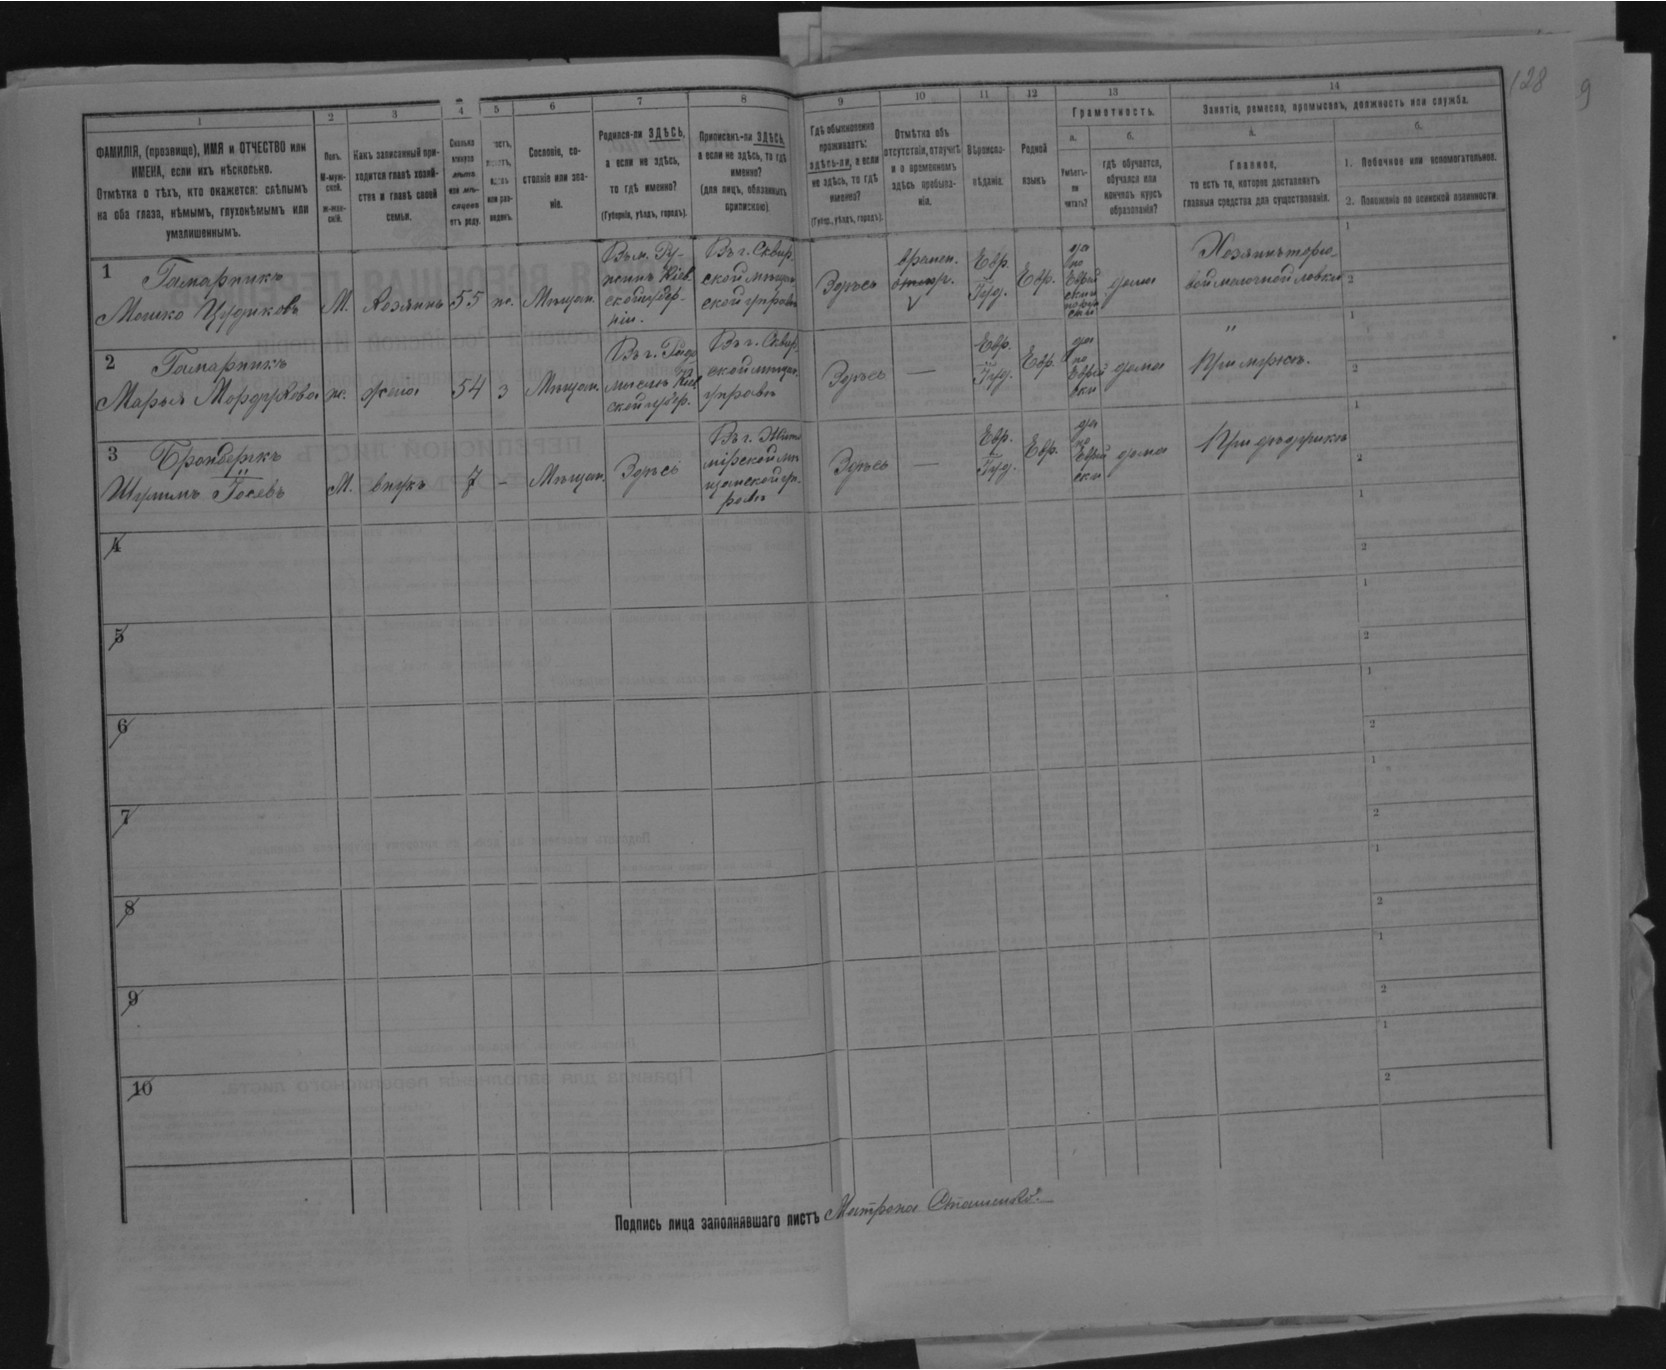 128
9
1
2
3
4
5
6
7
8
9
10
11
12
13
14
ФАМИЛІЯ, (прозвище), ИМЯ и ОТЧЕСТВО или
ИМЕНА, если ихъ нѣсколько.
Отмѣтка о тѣхъ, кто окажется: слѣпымъ
на оба глаза, нѣмымъ, глухонѣмымъ или
умалишеннымъ.
Полъ.
М-муж-
ской.
Ж-жен-
скій.
Какъ записанный при-
ходится главѣ хозяй-
ства и главѣ своей
семьи.
Сколько
минуло
лѣтъ
или мѣ-
сяцевъ
отъ роду.
Сословіе, со-
стояніе или зва-
ніе.
Родился-ли ЗДѢСЬ,
а если не здѣсь,
то гдѣ именно?
(Губернія, уѣздъ, городъ).
Приписанъ-ли ЗДѢСЬ,
а если не здѣсь, то гдѣ
именно?
(для лицъ, обязанныхъ
припискою).
Гдѣ обыкновенно
проживаетъ:
здѣсь-ли, а если
не здѣсь, то гдѣ
именно?
(Губер., уѣздъ, городъ).
Отмѣтка объ
отсутствіи, отлучкѣ
и о временномъ
здѣсь пребыва-
ніи.
Вѣроиспо-
вѣданіе.
Родной
языкъ
Грамотность.
а.
Умѣетъ-
ли
читать?
б.
гдѣ обучается,
обучался или
кончилъ курсъ
образованія?
Занятіе, ремесло, промыселъ, должность или служба.
а.
Главное,
то есть то, которое доставляетъ
главныя средства для существованія.
б.
1. Побочное или вспомогательное.
2. Положеніе по воинской повинности.
1
Гамарникъ
Мошко Цудиковъ
М.
Хозяинъ
55
ж.
Мѣщан.
Въ м.
Кіев.
ской губер-
ніи.
Въ г. Сквир.
ской мѣщан.
ской управѣ
Здѣсь
времен.
Евр.
Іуд.
Евр.
да
по
Еврей
ски
дома
Хозяинъ торго-
вой мелочной лавки
1
2
2
Гамарникъ
Марья Мордухова
ж.
жена
54
з
Мѣщан.
Кіев
ской губер.
Въ г. Сквир.
ской мѣщан.
управѣ
Здѣсь
—
Евр.
Іуд.
Евр.
да
по
Еврей
ски
дома
"
При мужѣ.
1
2
3
Бронбергъ
Шулимъ Іосевъ
М.
внукъ
7
-
Мѣщан.
Здѣсь
Въ г. Жито
мірской мѣ
щанской уп.
равѣ
Здѣсь
—
Евр.
Іуд.
Евр.
да
по
Еврей
ски
дома
При дѣдушкѣ
1
2
4
1
2
5
1
2
6
1
2
7
1
2
8
1
2
9
1
2
10
1
2
Подпись лица заполнявшаго листъ